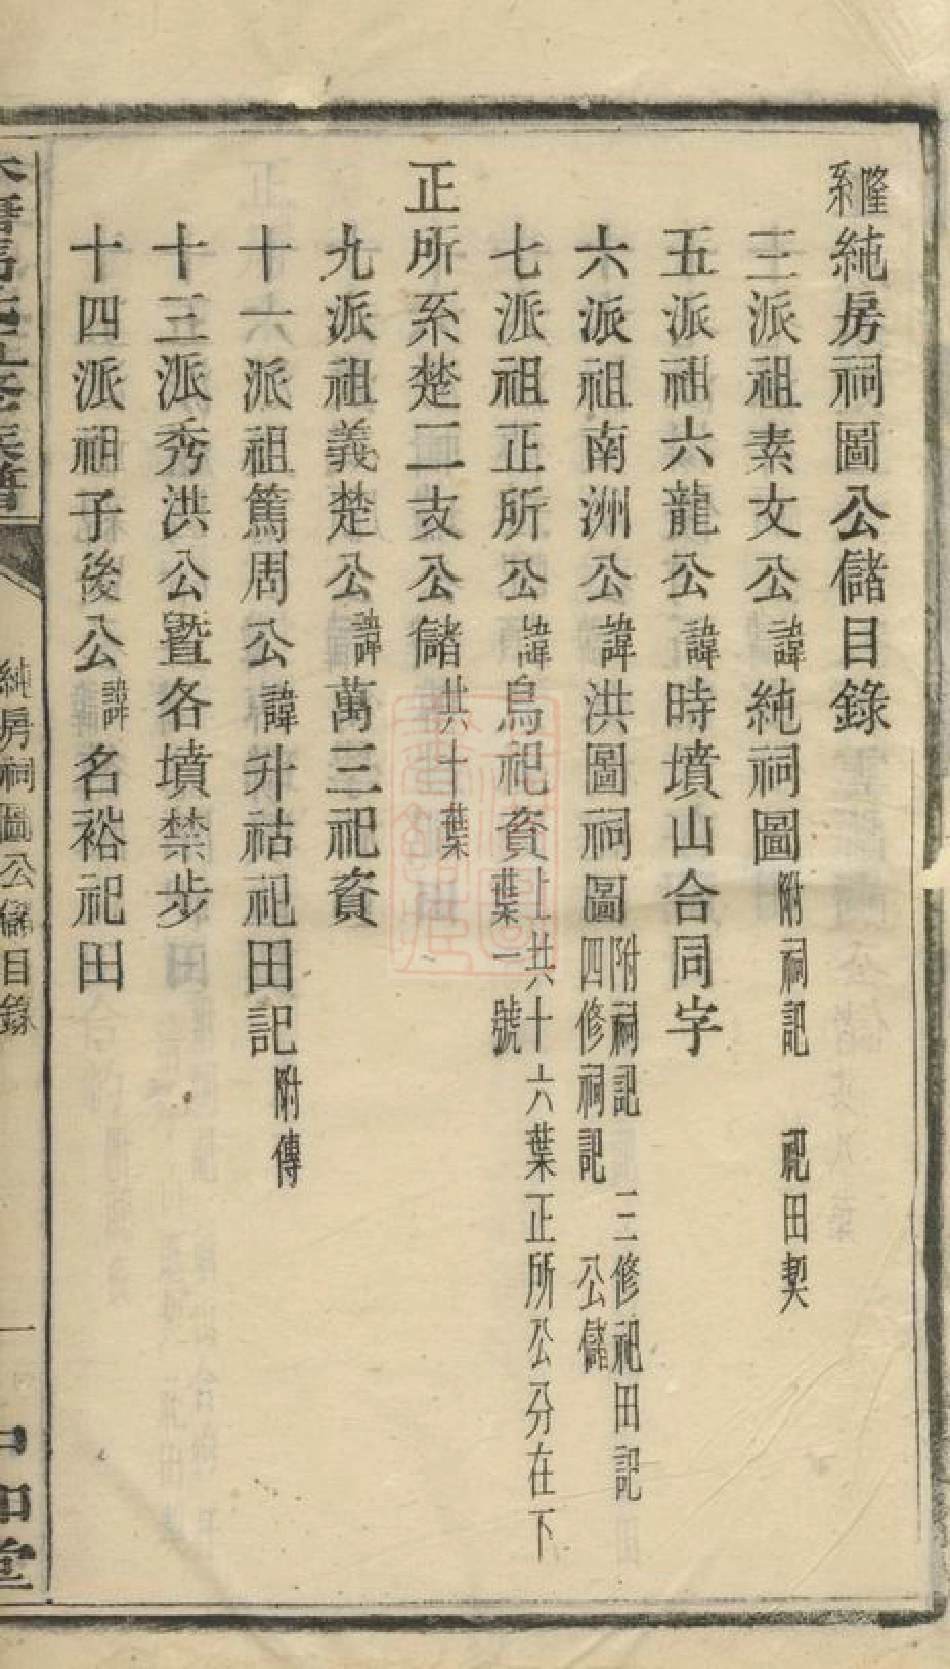 隆系純房祠圖公儲目錄
三派祖素文公諱純祠圖附祠記 祀田契
五派祖六龍公諱時墳山合同字
六派祖南洲公諱洪圖祠圖附祠記 三修祀田記四修祠記 公儲
七派祖正所公諱烏祀資上共十六葉正所公分在下葉一號
正所系楚二支公儲共十葉
九派祖義楚公諱萬三祀資
十六派祖篤周公諱升祜祀田記附傳
十三派秀洪公暨各墳禁步
十四派祖子後公諱名裕祀田
純房祠圖公儲目錄
一
中和堂